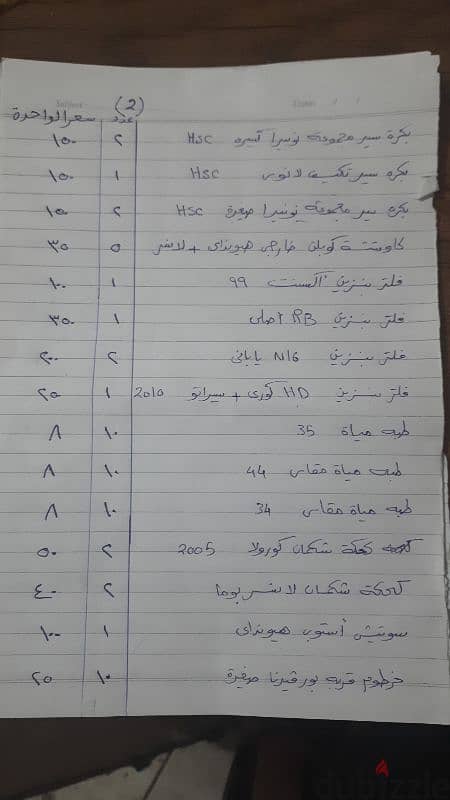 (2)
عدد سعر الواحدة
بكرة سير مجموعة نوبيرا كبيره HSC ٢ ١٥٠
بكره سير تكييف لانوس HSC ١ ١٥٠
بكره سير مجموعه نوبيرا صغيرة HSC ٢ ١٥٠
كاوتشة كوبلن خارجى هيونداى + لانسر ٥ ٣٥
فلتر بنزين اكسنت ٩٩ ١ ١٠٠
فلتر بنزين RB اصلى ١ ٣٥٠
فلتر بنزين N16 يابانى ٢ ٢٠٠
فلتر بنزين HD كورى + سيراتو 2010 ١ ٢٥
طبه مياة 35 ١٠ ٨
طبه مياة مقاس 44 ١٠ ٨
طبه مياة مقاس 34 ١٠ ٨
كحكة شكمان كورولا 2005 ٢ ٥٠
كحكة شكمان لانسر بوما ٢ ٤٠
سوتيش أستوب هيونداى ١ ١٠٠
خرطوم قربه بور فيرنا صغيرة ١٠ ٢٥
dubizzle